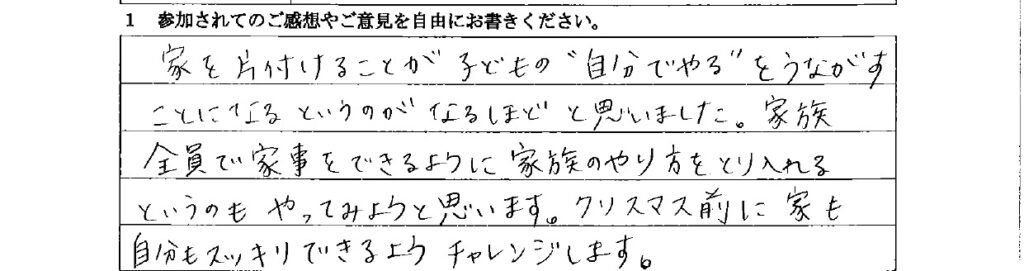 1 参加されてのご感想やご意見を自由にお書きください。
家を片付けることが子どもの"自分でやる"をうながす
ことになるというのがなるほどと思いました。家族
全員で家事をできるように家族のやり方をとり入れる
というのもやってみようと思います。クリスマス前に家も
自分もスッキリできるようチャレンジします。